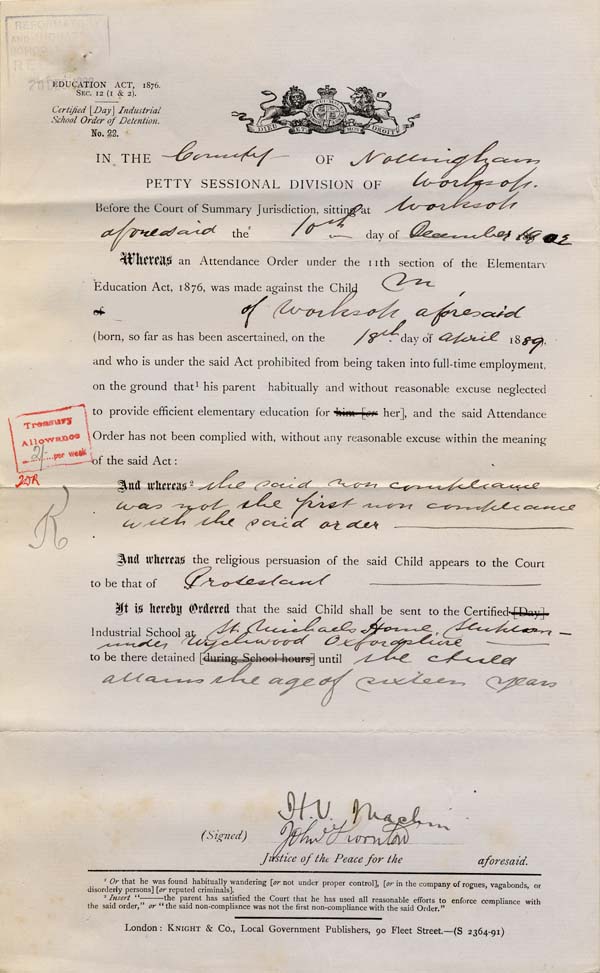 REFORMATORY
EDUCATION ACT, 1876.
SEC. 12 (1 & 2).
Certified [Day] Industrial
School Order of Detention.
No. 22.
DIEU ET MON DROIT
IN THE County OF Nottingham
PETTY SESSIONAL DIVISION OF Worksop.
Before the Court of Summary Jurisdiction, sitting at Worksop
aforesaid the 10th day of December 1902
Whereas an Attendance Order under the 11th section of the Elementary
Education Act, 1876, was made against the Child M
of of Worksop aforesaid
(born, so far as has been ascertained, on the 18th day of April 1889,
and who is under the said Act prohibited from being taken into full-time employment,
on the ground that¹ his parent habitually and without reasonable excuse neglected
to provide efficient elementary education for him [or her], and the said Attendance
Order has not been complied with, without any reasonable excuse within the meaning
of the said Act:
Treasury
Allowance
2/- per week
And whereas² the said non compliance
was not the first non compliance
with the said order
And whereas the religious persuasion of the said Child appears to the Court
to be that of Protestant
It is hereby Ordered that the said Child shall be sent to the Certified [Day]
Industrial School at St. Michaels Home, Shipton-
under Wychwood Oxfordshire
to be there detained [during School hours] until the child
attains the age of sixteen years
H.V. Machin
(Signed) John
Justice of the Peace for the aforesaid.
¹ Or that he was found habitually wandering [or not under proper control], [or in the company of rogues, vagabonds, or
disorderly persons] [or reputed criminals].
² Insert "———the parent has satisfied the Court that he has used all reasonable efforts to enforce compliance with
the said order," or "the said non-compliance was not the first non-compliance with the said Order."
London: KNIGHT & CO., Local Government Publishers, 90 Fleet Street.—(S 2364-91)